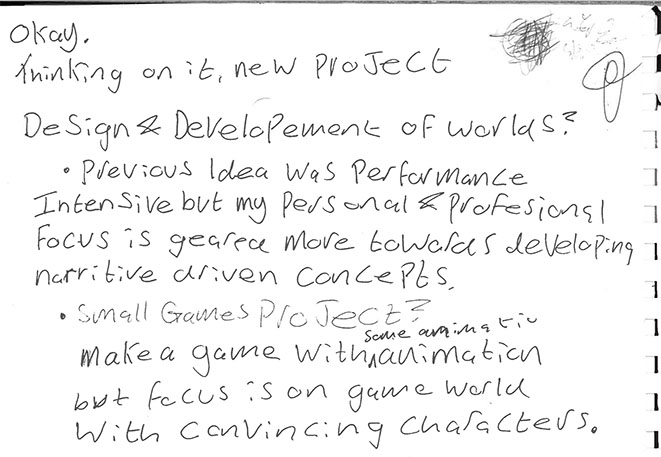 Okay.
Thinking on it, new project
Design & Developement of worlds?
• Previous Idea was performance
Intensive but my personal & profesional
focus is geared more towards developing
narritive driven concepts.
• Small Games Project?
some
make a game with animation
but focus is on game world
with convincing characters.